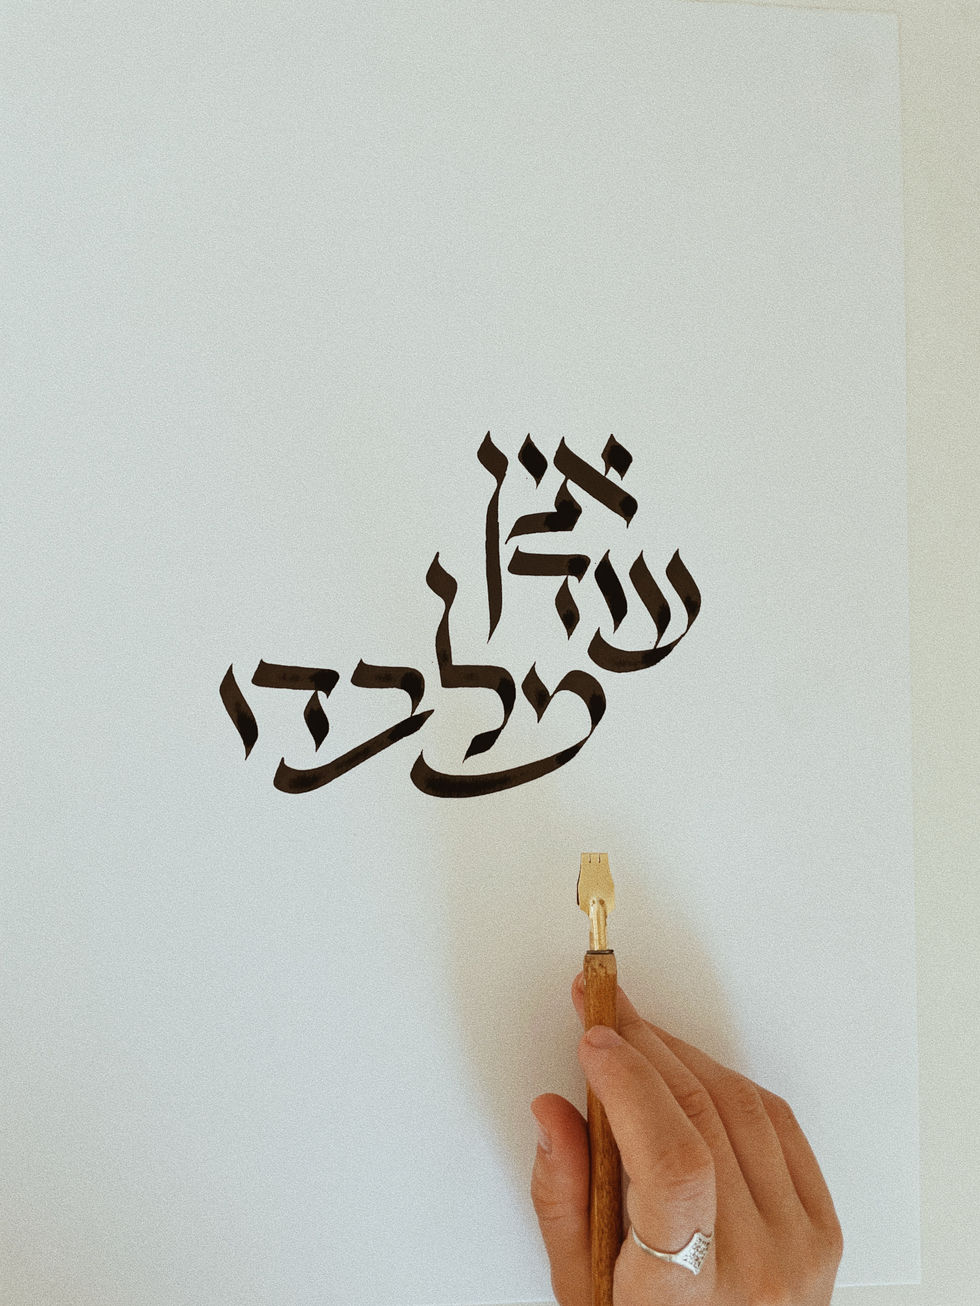 אין
עוד
מלבדו